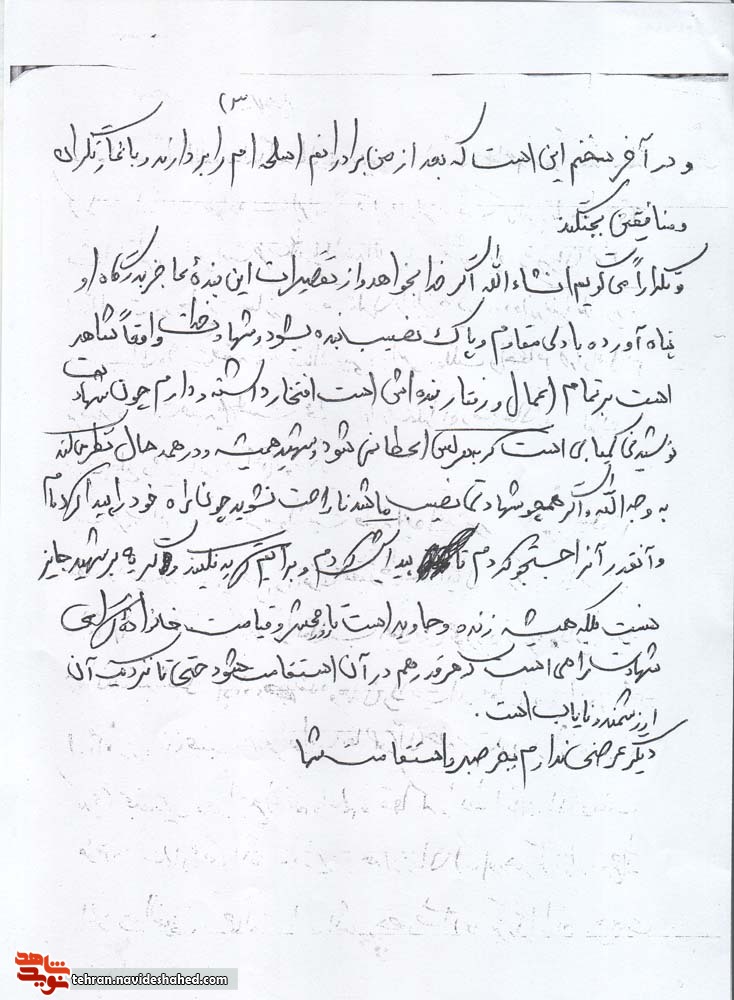 (۳
و در آخر سخنم این است که بعد از من برادرانم اسلحه ام را بردارند و با غارتگران
و منافقین بجنگند
و تکراراً می گویم انشاء الله اگر خدا بخواهد و از تقصیرات این بندهٔ عاجز بدرگاه او
پناه آورده با دلی مقاوم و پاک نصیب بنده بشود و شهادت واقعاً شاهد
است بر تمام اعمال و رفتار بنده اش است افتخار داشته و دارم چون شهادت
نوشیدنی کمیابی است که بهر کس اعطا نمی شود و شهید همیشه و در همه حال نظر می کند
به وجه الله و اگر همچو شهادتی نصیب ما شد ناراحت نشوید چون راه خود را پیدا کرده ام
و آنقدر آنرا جستجو کردم تا پیدایش کردم و برایم گریه نکنید و گریه بر شهید جایز
نیست بلکه همیشه زنده و جاوید است تا روز محشر و قیامت
شهادت راهی است که هر قدر هم در آن استقامت شود حتی تا نزدیک آن
ارزشمند و نایاب است .
دیگر عرضی ندارم بغیر صبر و استقامت شما
نوید شاهد
tehran.navideshahed.com